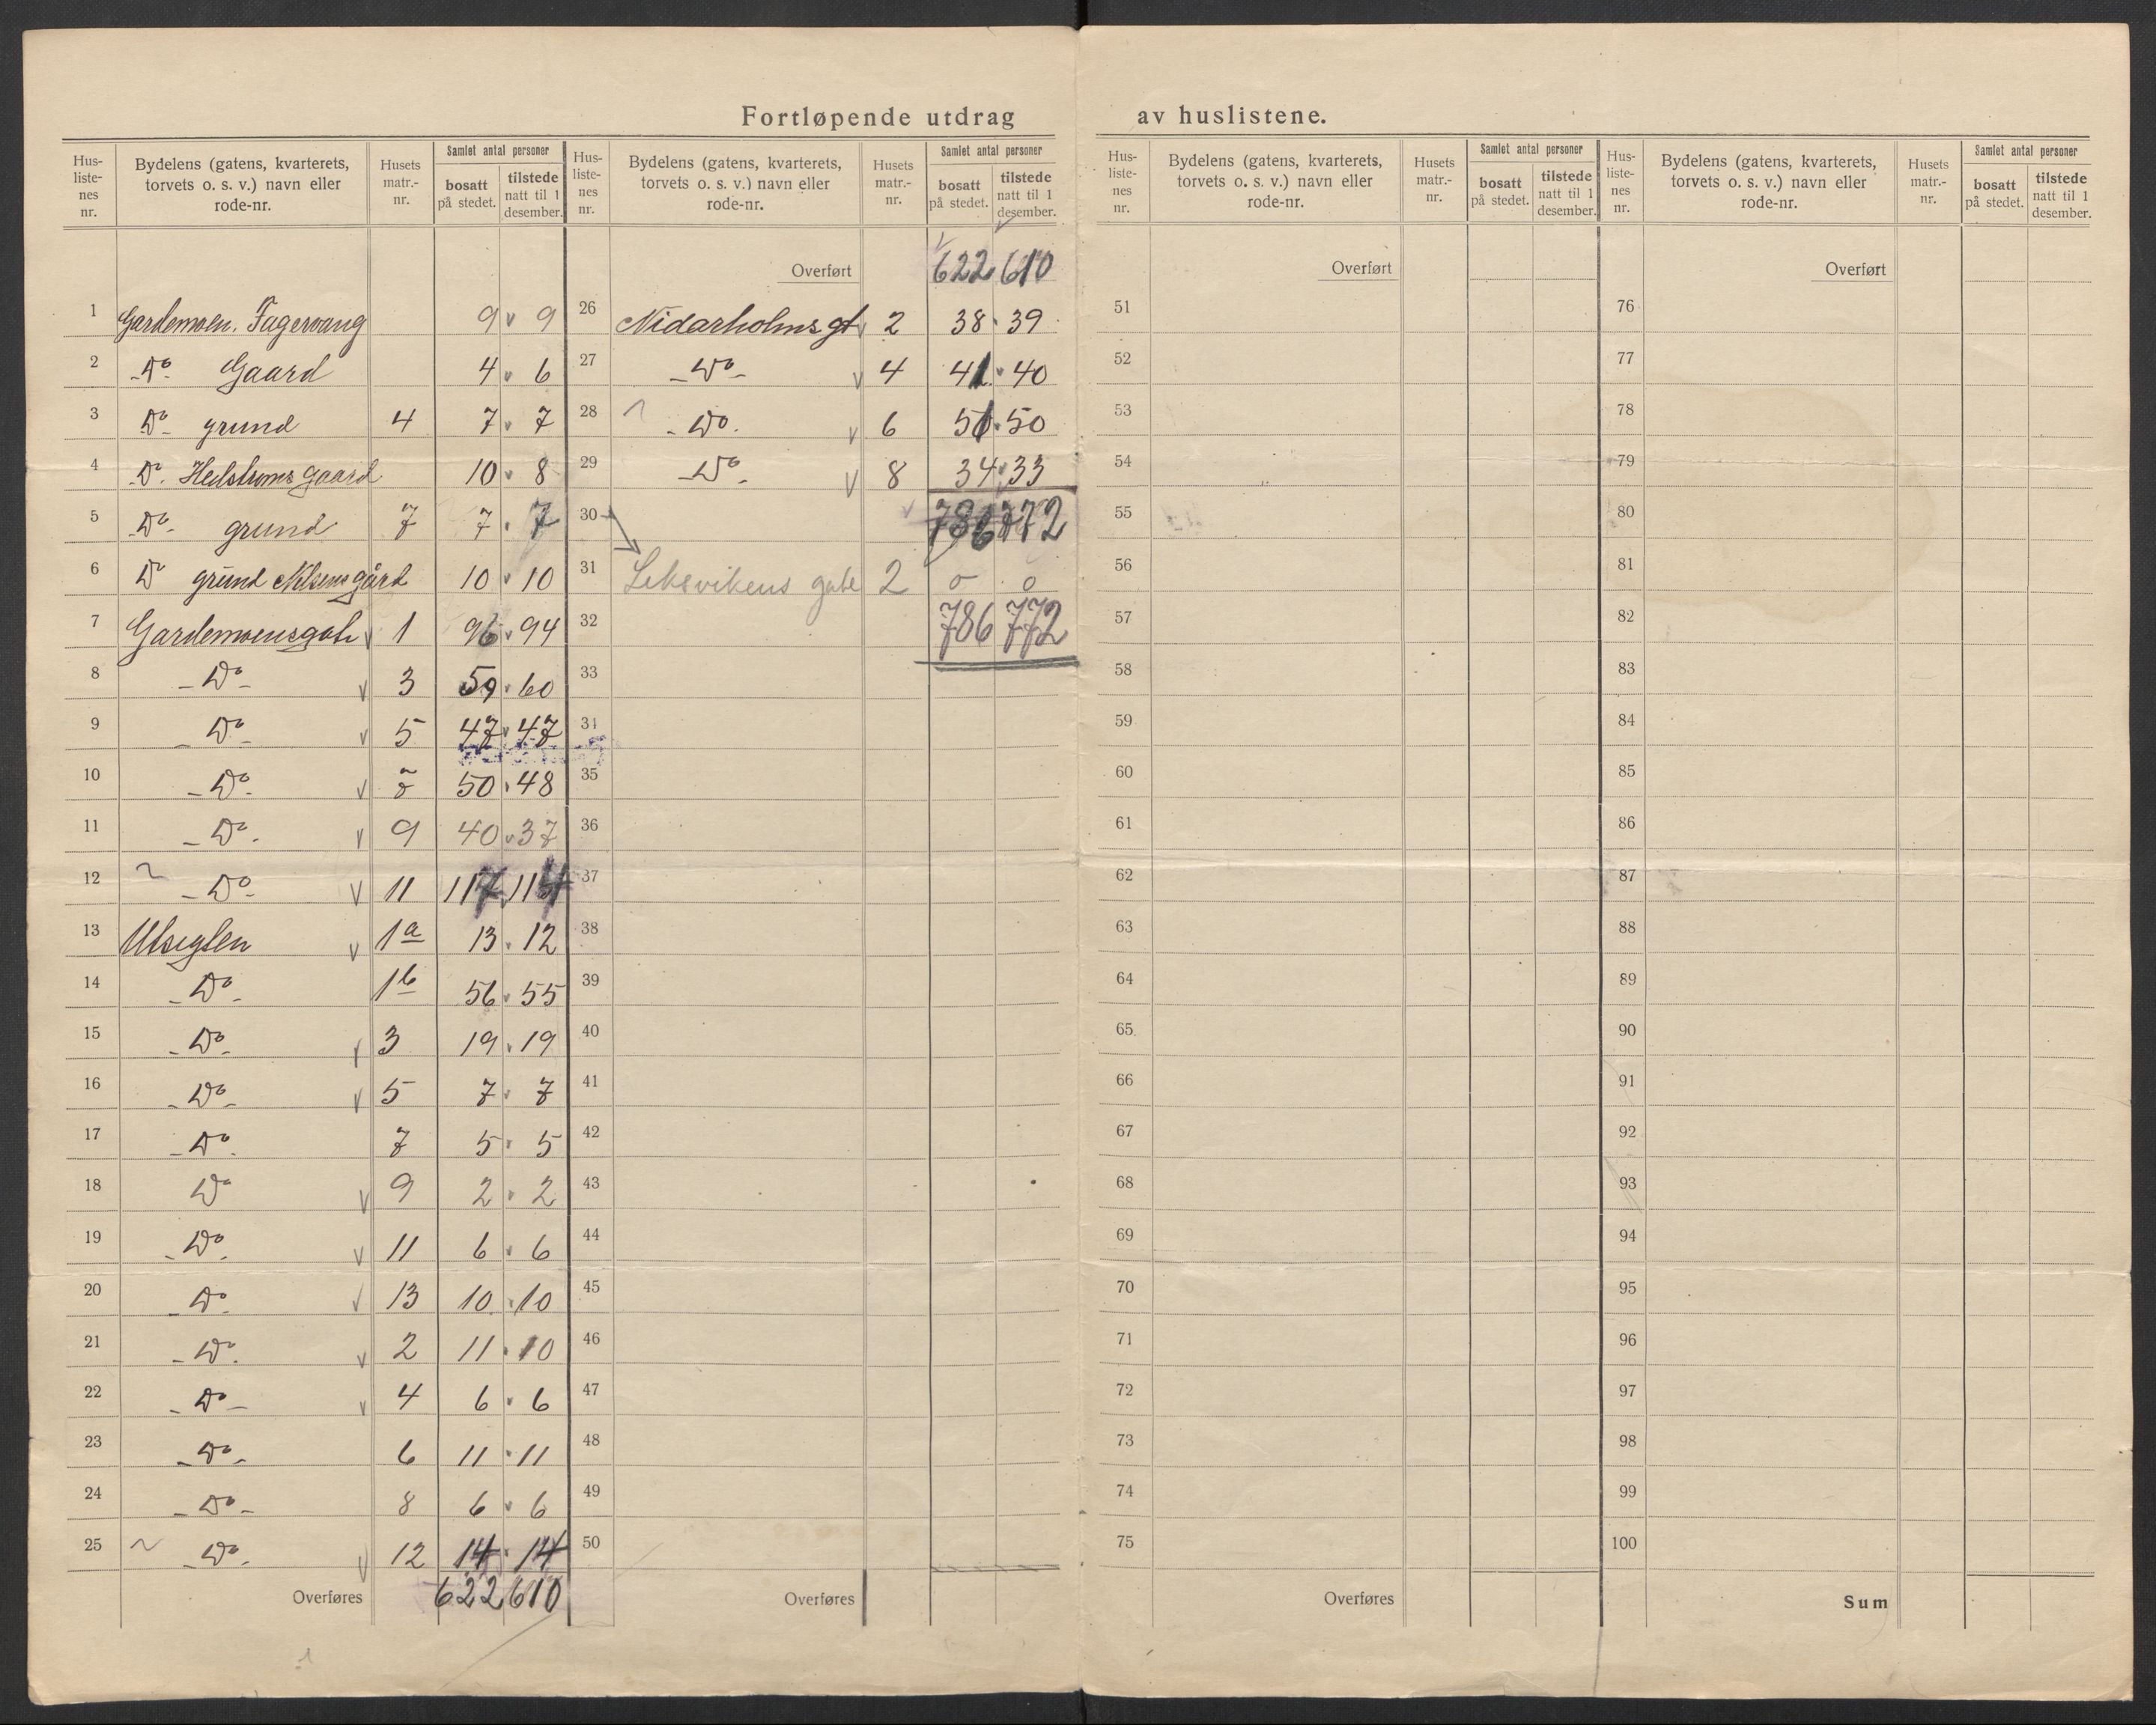 Fortløpende utdrag av huslistene.
Hus-liste-nes nr. | Bydelens (gatens, kvarterets, torvets o. s. v.) navn eller rode-nr. | Husets matr.-nr. | Samlet antal personer bosatt på stedet. | tilstede natt til 1 desember.
1 Gardemoen. Fagervang 9 v 9
2 -Do- Gaard 4 v 6
3 Do- grund 4 7 v 7
4 -Do. Hedstroms gaard 10 v 8
5 -Do- grund 7 7 . 7
6 Do grund Nilsens gård 10 v 10
7 Gardemoensgate v 1 96 v 94
8 -Do- v 3 59 v 60
9 -Do- v 5 47 v 47
10 -Do- v 50 . 48
11 -Do-. v 9 40 v 37
12 ~ -Do- v 11 117 114
13 v 1a 13 . 12
14 -Do- 1b 56 v 55
15 -Do- v 3 19 . 19
16 -Do- v 5 7 v 7
17 -Do- 7 5 v 5
18 Do v 9 2 v 2
19 -Do- v 11 6 v 6
20 -Do- v 13 10 . 10
21 -Do. v 2 11 . 10
22 -Do- v 4 6 v 6
23 -Do- 6 11 . 11
24 -Do- 8 6 v 6
25 ~ -Do-. v 12 14 . 14
Overføres 622 610
Hus-liste-nes nr. | Bydelens (gatens, kvarterets, torvets o. s. v.) navn eller rode-nr. | Husets matr.-nr. | Samlet antal personer bosatt på stedet. | tilstede natt til 1 desember.
Overført 622 610
26 Nidarholms gt v 2 38 . 39
27 -Do- v 4 41 . 40
28 -Do. v 6 51 . 50
29 -Do- v 8 34 . 33
30 786 772
31 Leksvikens gate 2 0 0
32 786 772
33
34
35
36
37
38
39
40
41
42
43
44
45
46
47
48
49
50
Overføres
Hus-liste-nes nr. | Bydelens (gatens, kvarterets, torvets o. s. v.) navn eller rode-nr. | Husets matr.-nr. | Samlet antal personer bosatt på stedet. | tilstede natt til 1 desember.
Overført
51
52
53
54
55
56
57
58
59
60
61
62
63
64
65
66
67
68
69
70
71
72
73
74
75
Overføres
Hus-liste-nes nr. | Bydelens (gatens, kvarterets, torvets o. s. v.) navn eller rode-nr. | Husets matr.-nr. | Samlet antal personer bosatt på stedet. | tilstede natt til 1 desember.
Overført
76
77
78
79
80
81
82
83
84
85
86
87
88
89
90
91
92
93
94
95
96
97
98
99
100
Sum